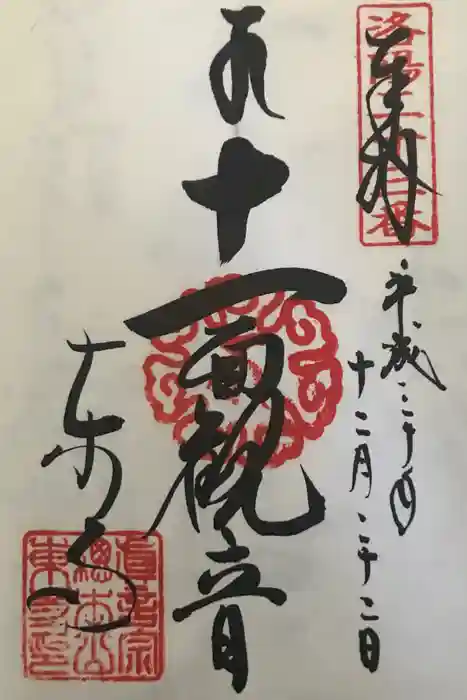 洛陽二十三番
奉拝
平成三十年
十二月二十二日
十一面観音
東寺
真言宗
總本山
東寺印